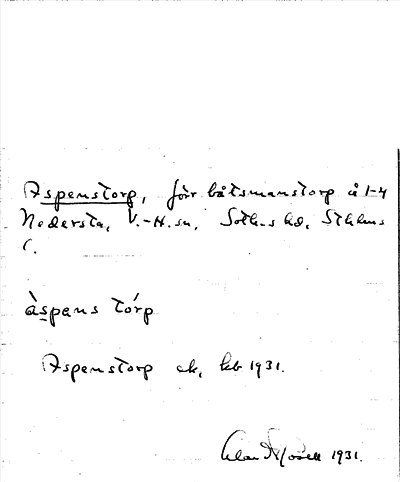 Aspenstorp, förr båtsmanstorp å 1-4
Nedersta, V.-H.sn, Soth-s hd, Sthlms
l.
àspens tórp
Aspenstorp ek, kb 1931.
1931.